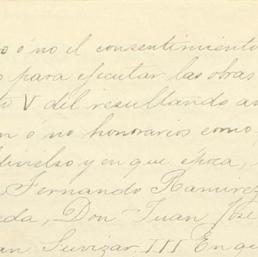 o ó no el consentimiento
s para ejecutar las obras
to V del resultando an
n ó no honorarios como
diviso y en que época,
Fernando Ramirez
eda, Don Juan José
an Suvizar III En qu